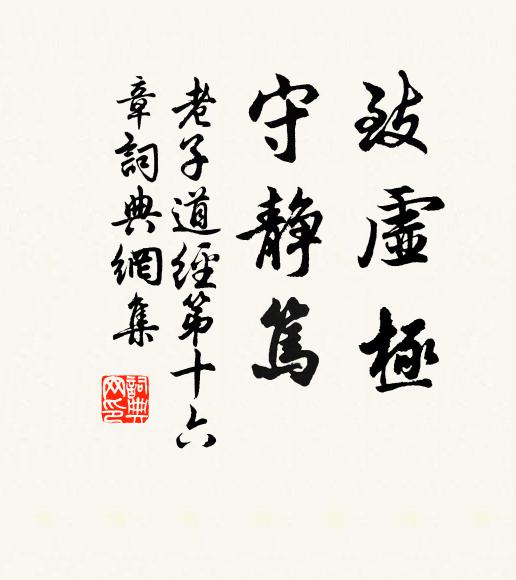 致虛極
守靜篤
老子道經第十六
章詞典網集
詞典网印